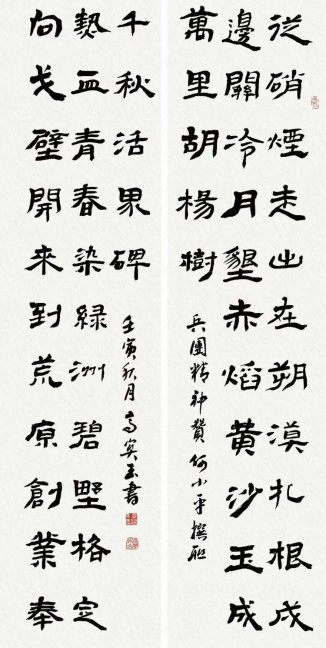 從硝煙走出在朔漠扎根戍
邊關冷月墾赤熖黃沙玉成
萬里胡楊樹
兵團精神贊何小平撰聯
向戈壁開來到荒原創業奉
熱血青春染綠洲碧野格定
千秋活界碑
壬寅秋月高玉書